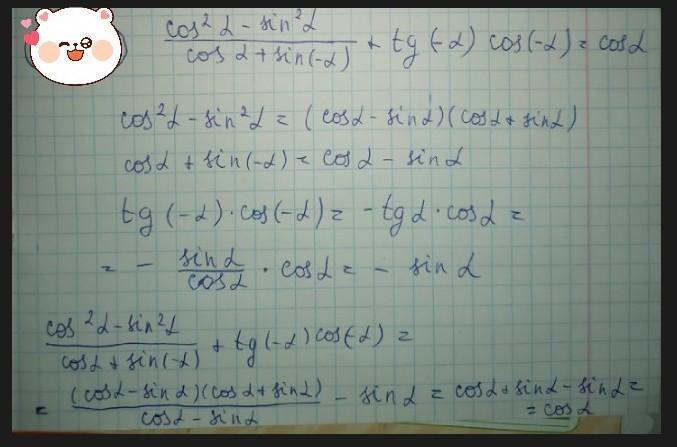 cos²α - sin²α / cos α + sin(-α) + tg(-α) cos(-α) = cosα
cos²α - sin²α = (cosα - sinα)(cosα + sinα)
cosα + sin(-α) = cosα - sinα
tg(-α)·cos(-α) = -tgα·cosα =
= - sinα / cosα · cosα = - sinα
cos²α - sin²α / cosα + sin(-α) + tg(-α) cos(-α) =
= (cosα - sinα)(cosα + sinα) / cosα - sinα - sinα = cosα + sinα - sinα =
= cosα